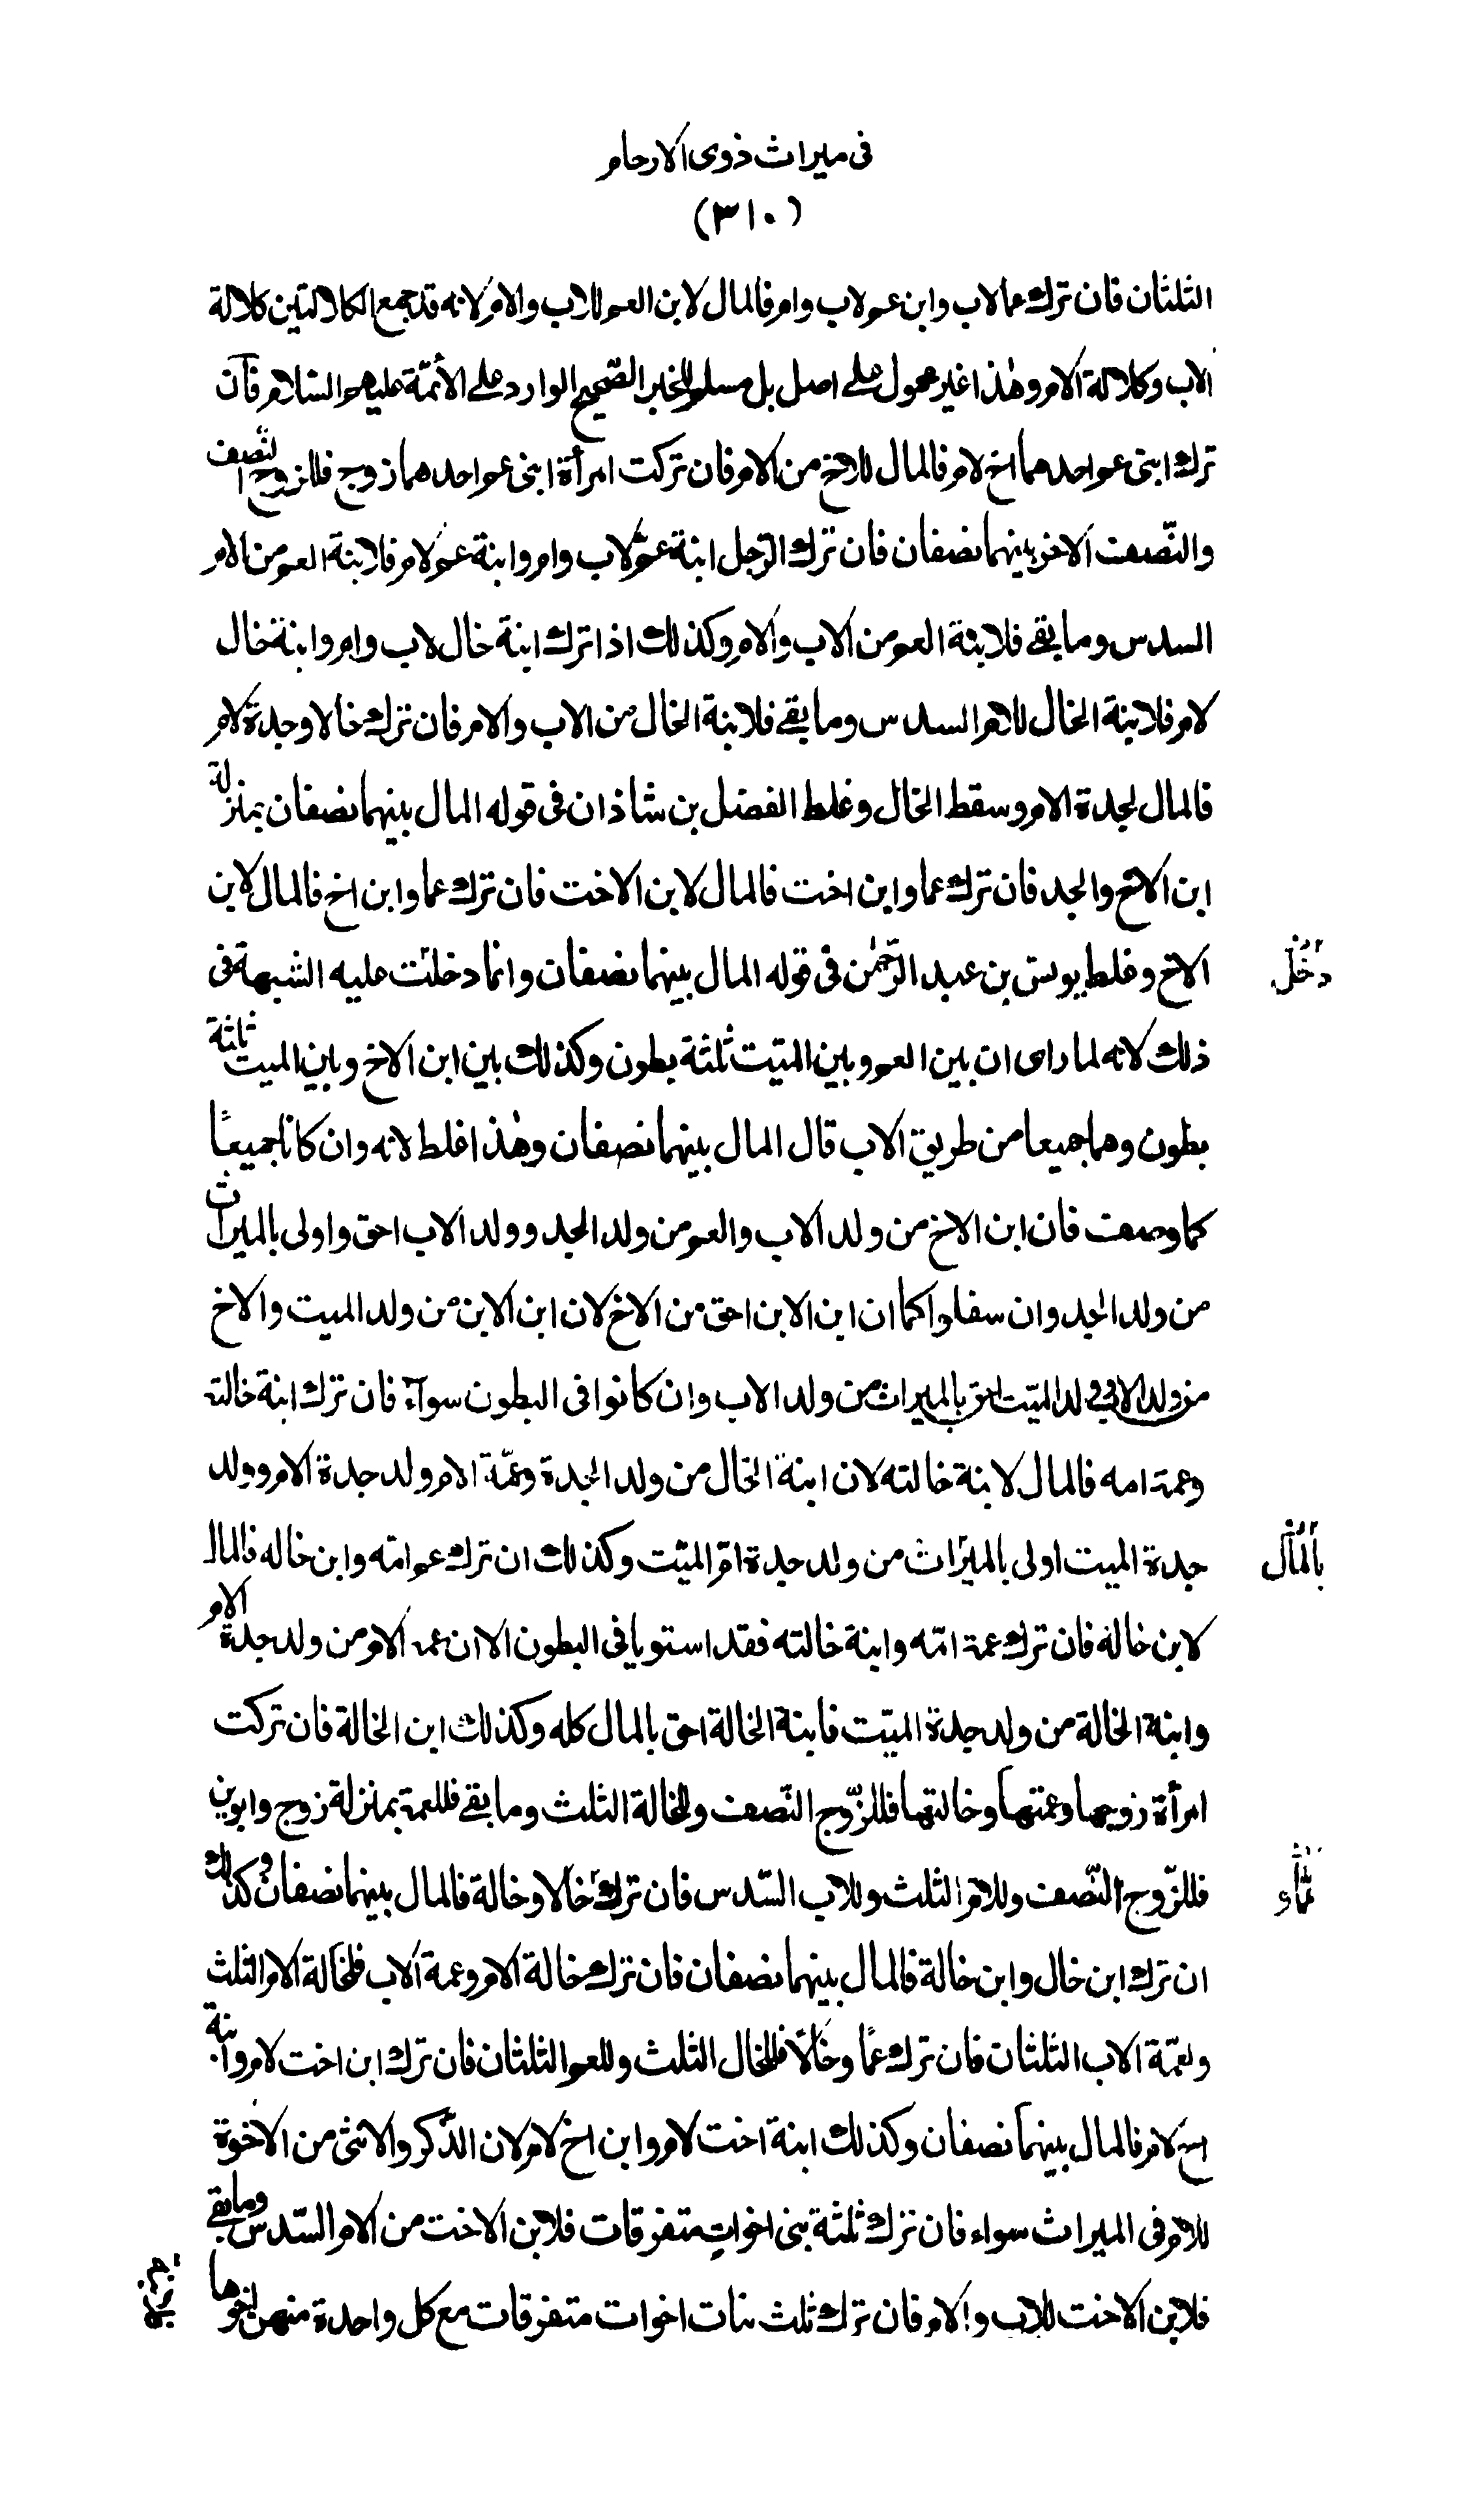 فی میراث ذوی الارحام
(٣١٠)
الثلثان فان ترك عما لاب وابن عم لاب وام فالمال لابن العم للاب والام لانه قد جمع الكلالتين كلالة
الاب وكلالة الام وهٰذا غير محمول علے اصل بل مسلم للخبر الصّحيح الوارد علے الأئمّة عليهم السّلام فان
ترك ابنى عم احدهما اخ لام فالمال للاخ من الام فان تركت امرأة ابنى عم احدهما زوج فللزوج النّصف
والنّصف الاخر بينهما نصفان فان ترك الرّجل ابنة عمّ لاب وام وابنة عم لام فلابنة العم من الام
السدس وما بقے فلابنة العم من الاب والام وكذلك اذا ترك ابنة خال لاب وام وابنة خال
لام فلابنة الخال للام السدس وما بقے فلابنة الخال من الاب والام فان ترك خالا وجدة لام
فالمال لجدة الام وسقط الخال وغلط الفضل بن شاذان فى قوله المال بينهما نصفان بمنزلة
ابن الاخ والجد فان ترك عما وابن اخت فالمال لابن الاخت فان ترك عما وابن اخ فالمال لابن
الاخ وغلط يونس بن عبد الرّحمٰن فى قوله المال بينهما نصفان وانما دخلت عليه الشبهة فى
دخل
ذلك لانه لما راى ان بين العم وبين الميّت ثلثة بطون وكذلك بين ابن الاخ وبين الميت ثلثة
بطون وهما جميعا من طريق الاب قال المال بينهما نصفان وهٰذا غلط لانه وان كانا جميعًا
كما وصف فان ابن الاخ من ولد الاب والعم من ولد الجد وولد الاب احق واولى بالميراث
من ولد الجد وان سفلوا كما ان ابن الابن احق من الاخ لان ابن الابن من ولد الميت والاخ
من ولد الاب وولد الميّت احق بالميراث من ولد الاب وان كانوا فى البطون سوآء فان ترك ابنة خالته
وعمة امه فالمال لابنة خالته لان ابنة الخال من ولد الجدة وعمّة الام ولد جدة الام وولد
جدة الميت اولى بالميراث من ولد جدة امّ الميّت وكذلك ان ترك عم امّه وابن خاله فالمال
بالمال
لابن خاله فان ترك عمة امّه وابنة خالته فقد استويا فى البطون الا ان عمة الام من ولد جدة الام
وابنة الخالة من ولد جدة الميّت فابنة الخالة احق بالمال كله وكذلك ابن الخالة فان تركت
امرأة زوجها وعمتها وخالتها فللزّوج النّصف وللخالة الثلث وما بقے فللعمة بمنزلة زوج وابوين
فللزّوج النّصف وللام الثلث وللاب السّدس فان ترك خالا وخالة فالمال بينهما نصفان وكذلك
عمّا و
ان ترك ابن خال وابن خالة فالمال بينهما نصفان فان ترك خالة الام وعمة الاب فلخالة الام الثلث
ولعمّة الاب الثلثان فان ترك عمًا وخالًا فللخال الثلث وللعم الثلثان فان ترك ابن اخت لام وابنة
اخ لام فالمال بينهما نصفان وكذلك ابنة اخت لام وابن اخ لام لان الذّكر والانثى من الاخوة
للام فى الميراث سواء فان ترك ثلثة بنى اخوات متفرقات فلابن الاخت من الام السّدس وما بقے
فلابن الاخت للاب والام فان ترك ثلث بنات اخوات متفرقات مع كل واحدة منهن اخوها